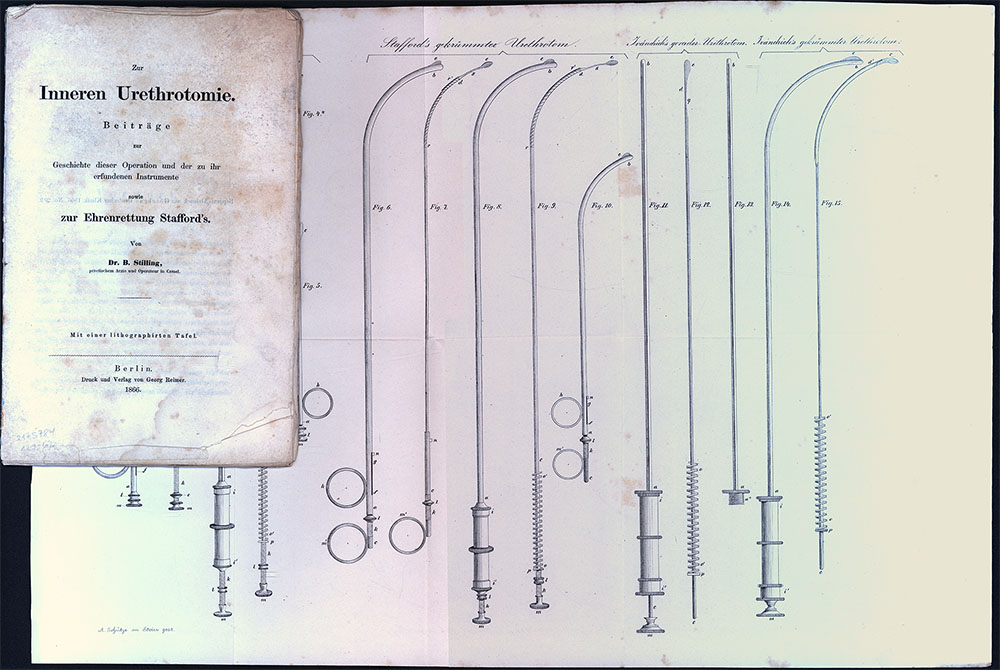 Zur
Inneren Urethrotomie.
Beiträge
zur
Geschichte dieser Operation und der zu ihr
erfundenen Instrumente
sowie
zur Ehrenrettung Stafford's.
Von
Dr. B. Stilling,
practischem Arzte und Operateur in Cassel.
Mit einer lithographirten Tafel.
Berlin.
Druck und Verlag von Georg Reimer.
1866.
Stafford's gekrümmter Urethrotom.
Ivánchich's gerader Urethrotom.
Ivánchich's gekrümmter Urethrotom.
Fig. 4.*
Fig. 5.
Fig. 6.
Fig. 7.
Fig. 8.
Fig. 9.
Fig. 10.
Fig. 11.
Fig. 12.
Fig. 13.
Fig. 14.
Fig. 15.